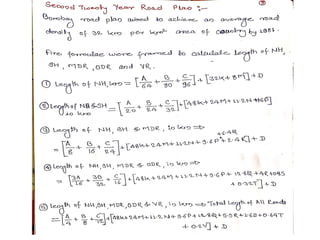 Second Twenty Year Road Plan :-
Bombay road plan aimed to achieve an average road
density of 32 km per km² area of country by 1981.
Five formulae were framed to calculate length of NH,
SH, MDR, ODR and VR.
① Length of NH, km = [A/64 + B/80 + C/96] + [32K + 8M] + D
② Length of NH & SH in km = [A/20 + B/24 + C/32] + [48K + 24M + 11.2N + 1.6P] + D
③ Length of NH, SH & MDR, in km =>
= [A/8 + B/16 + C/24] + [48K + 24M + 11.2N + 9.6P + 6.4Q + 2.4R] + D
④ Length of NH, SH, MDR & ODR, in km =>
= [3A/16 + 3B/32 + C/16] + [48K + 24M + 11.2N + 9.6P + 12.8Q + 4R + 0.8S
+ 0.32T] + D
⑤ Length of NH, SH, MDR, ODR & VR, in km => Total length of All Roads
= [A/4 + B/8 + C/12] + [48K + 24M + 11.2N + 9.6P + 12.8Q + 5.9R + 1.6S + 0.64T
+ 0.2V] + D